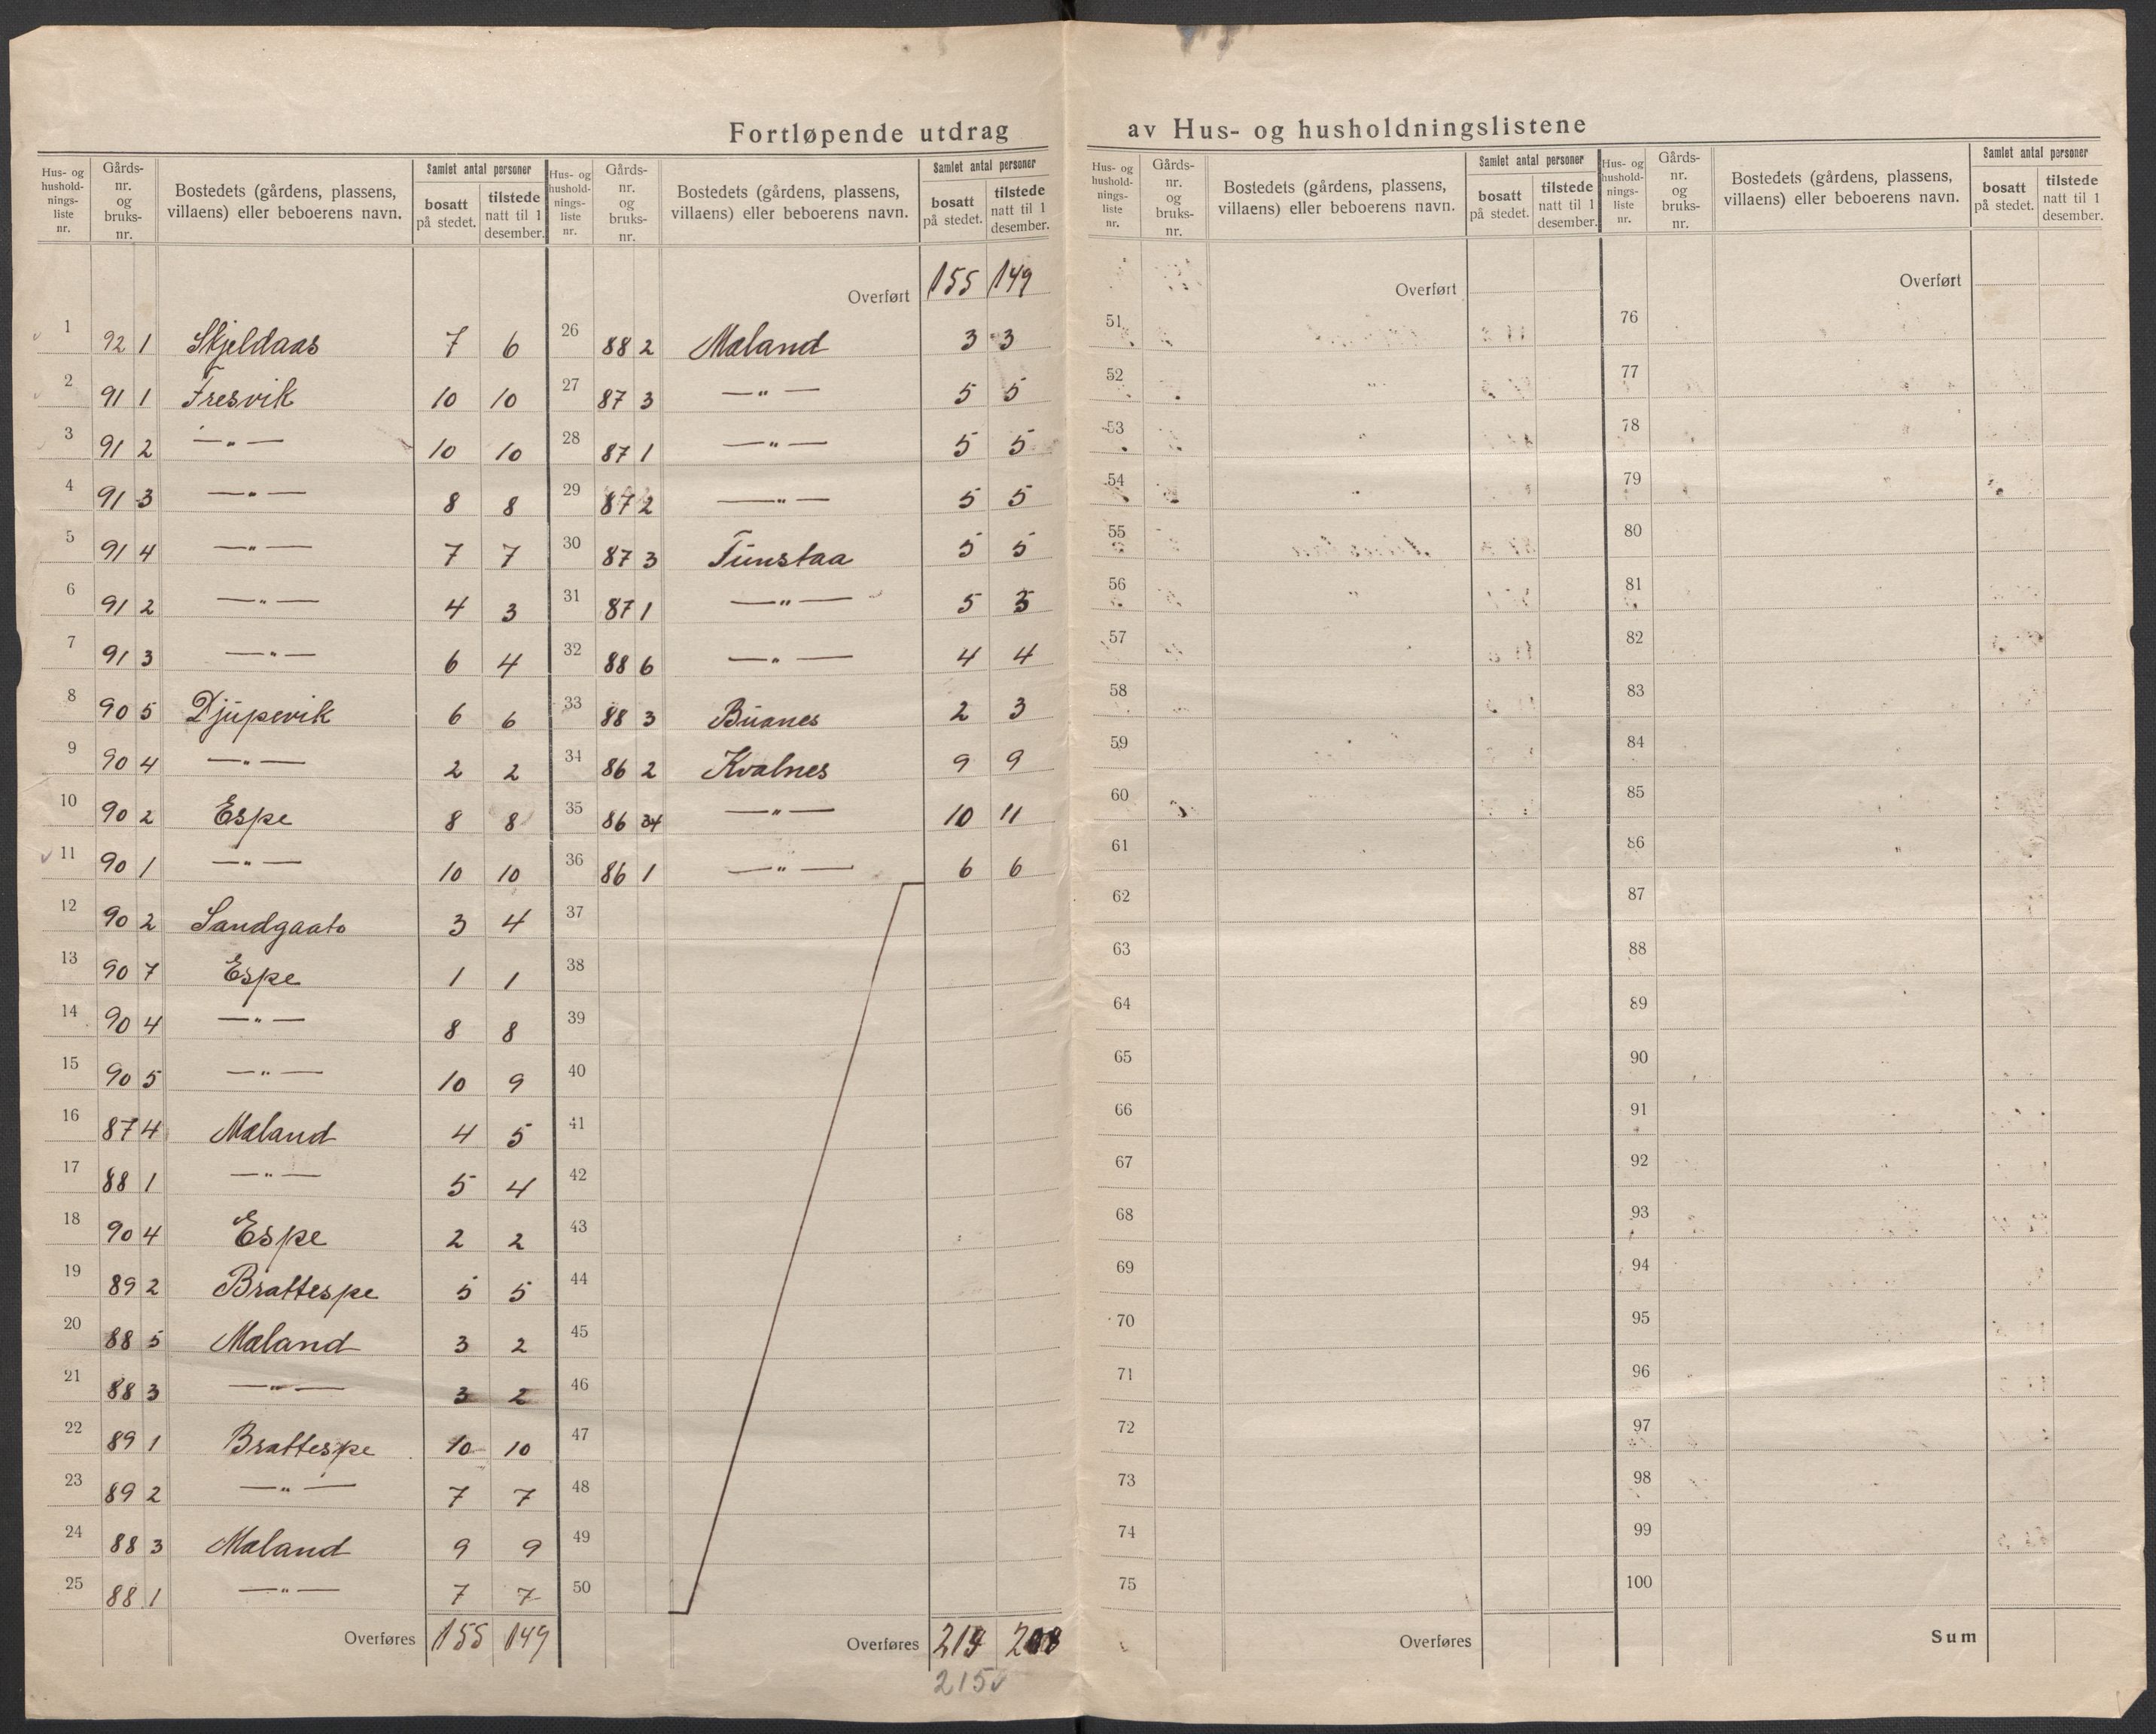 Fortløpende utdrag av Hus- og husholdningslistene
Hus- og hushold-nings-liste nr. Gårds-nr. og bruks-nr. Bostedets (gårdens, plassens, villaens) eller beboerens navn. Samlet antal personer bosatt på stedet. tilstede natt til 1 desember.
1 92 1 Skjeldaas 7 6
2 91 1 Fresvik 10 10
3 91 2 —„— 10 10
4 91 3 —„— 8 8
5 91 4 —„— 7 7
6 91 2 —„— 4 3
7 91 3 —„— 6 4
8 90 5 Djupevik 6 6
9 90 4 —„— 2 2
10 90 2 Espe 8 8
11 90 1 —„— 10 10
12 90 2 3 4
13 90 7 Espe 1 1
14 90 4 —„— 8 8
15 90 5 —„— 10 9
16 87 4 Maland 4 5
17 88 1 —„— 5 4
18 90 4 Espe 2 2
19 89 2 Brattespe 5 5
20 88 5 Maland 3 2
21 88 3 —„— 3 2
22 89 1 Brattespe 10 10
23 89 2 —„— 7 7
24 88 3 Maland 9 9
25 88 1 —„— 7 7
Overføres 155 149
Hus- og hushold-nings-liste nr. Gårds-nr. og bruks-nr. Bostedets (gårdens, plassens, villaens) eller beboerens navn. Samlet antal personer bosatt på stedet. tilstede natt til 1 desember.
Overført 155 149
26 88 2 Maland 3 3
27 87 3 —„— 5 5
28 87 1 —„— 5 5
29 87 2 —„— 5 5
30 87 3 Tunstaa 5 5
31 87 1 —„— 5 3
32 88 6 —„— 4 4
33 88 3 Buanes 2 3
34 86 2 Kvalnes 9 9
35 86 34 —„— 10 11
36 86 1 —„— 6 6
37
38
39
40
41
42
43
44
45
46
47
48
49
50
Overføres 219 208
215
Hus- og hushold-nings-liste nr. Gårds-nr. og bruks-nr. Bostedets (gårdens, plassens, villaens) eller beboerens navn. Samlet antal personer bosatt på stedet. tilstede natt til 1 desember.
Overført
51
52
53
54
55
56
57
58
59
60
61
62
63
64
65
66
67
68
69
70
71
72
73
74
75
Overføres
Hus- og hushold-nings-liste nr. Gårds-nr. og bruks-nr. Bostedets (gårdens, plassens, villaens) eller beboerens navn. Samlet antal personer bosatt på stedet. tilstede natt til 1 desember.
Overført
76
77
78
79
80
81
82
83
84
85
86
87
88
89
90
91
92
93
94
95
96
97
98
99
100
Sum